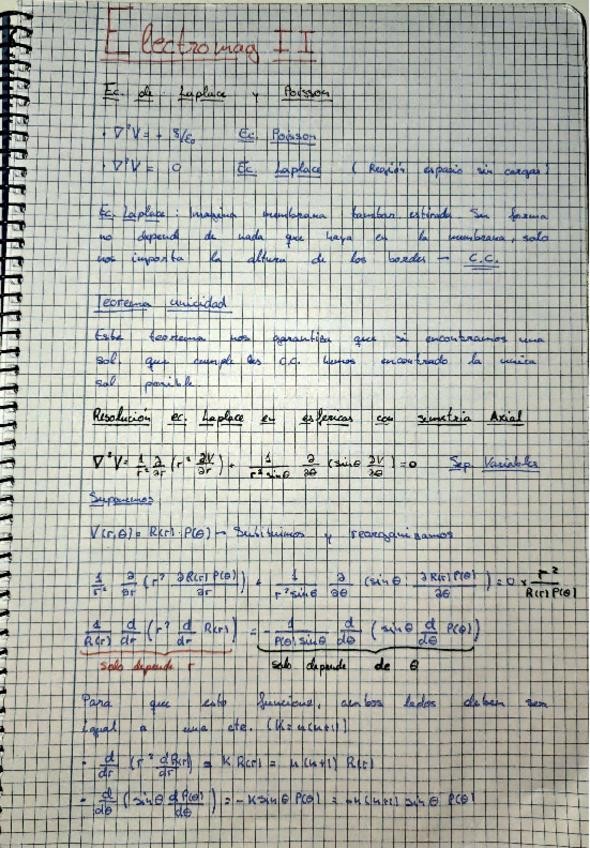 Electromag II
Ec. de Laplace y Poisson
· ∇²V = + δ/ε₀ Ec. Poisson
· ∇²V = 0 Ec. Laplace (Región espacio sin cargas)
Ec. Laplace: Imagina membrana tambor estirada. Su forma
no depende de nada que haya en la membrana, solo
nos importa la altura de los bordes → C.C.
Teorema unicidad
Este teorema nos garantiza que si encontramos una
sol. que cumple las C.C. hemos encontrado la unica
sol posible.
Resolución ec. Laplace en esfericas con simetria Axial
∇²V = 1/r² ∂/∂r (r² ∂V/∂r) + 1/(r² sinθ) ∂/∂θ (sinθ ∂V/∂θ) = 0 Sep. Variables
Suponemos
V(r,θ) = R(r)·P(θ) → Substituimos y reorganizamos
1/r² ∂/∂r (r² ∂R(r)P(θ)/∂r) + 1/(r² sinθ) ∂/∂θ (sinθ · ∂R(r)P(θ)/∂θ) = 0 × r²/(R(r)P(θ))
1/R(r) d/dr (r² d/dr R(r)) = - 1/(P(θ) sinθ) d/dθ (sinθ d/dθ P(θ))
solo depende r solo depende de θ
Para que esto funcione, ambos lados deben ser
igual a una cte. (K = n(n+1))
- d/dr (r² dR(r)/dr) = K R(r) = n(n+1) R(r)
- d/dθ (sinθ dP(θ)/dθ) = -K sinθ P(θ) = -n(n+1) sinθ P(θ)